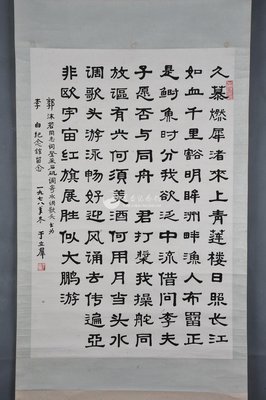 久慕燃犀渚来上青莲楼日照长江
如血千里豁明眸洲畔渔人布罶正
是鲥鱼时分我欲泛中流借问李夫
子愿否与同舟君打桨我操舵同
放讴有兴何须美酒何用月当头水
调歌头游泳畅好迎风诵去传遍亞
非欧宇宙红旗展胜似大鹏游
郭沫若同志词登采石矶调寄水调歌头书为
李白纪念馆留念 一九七八年冬 于立群